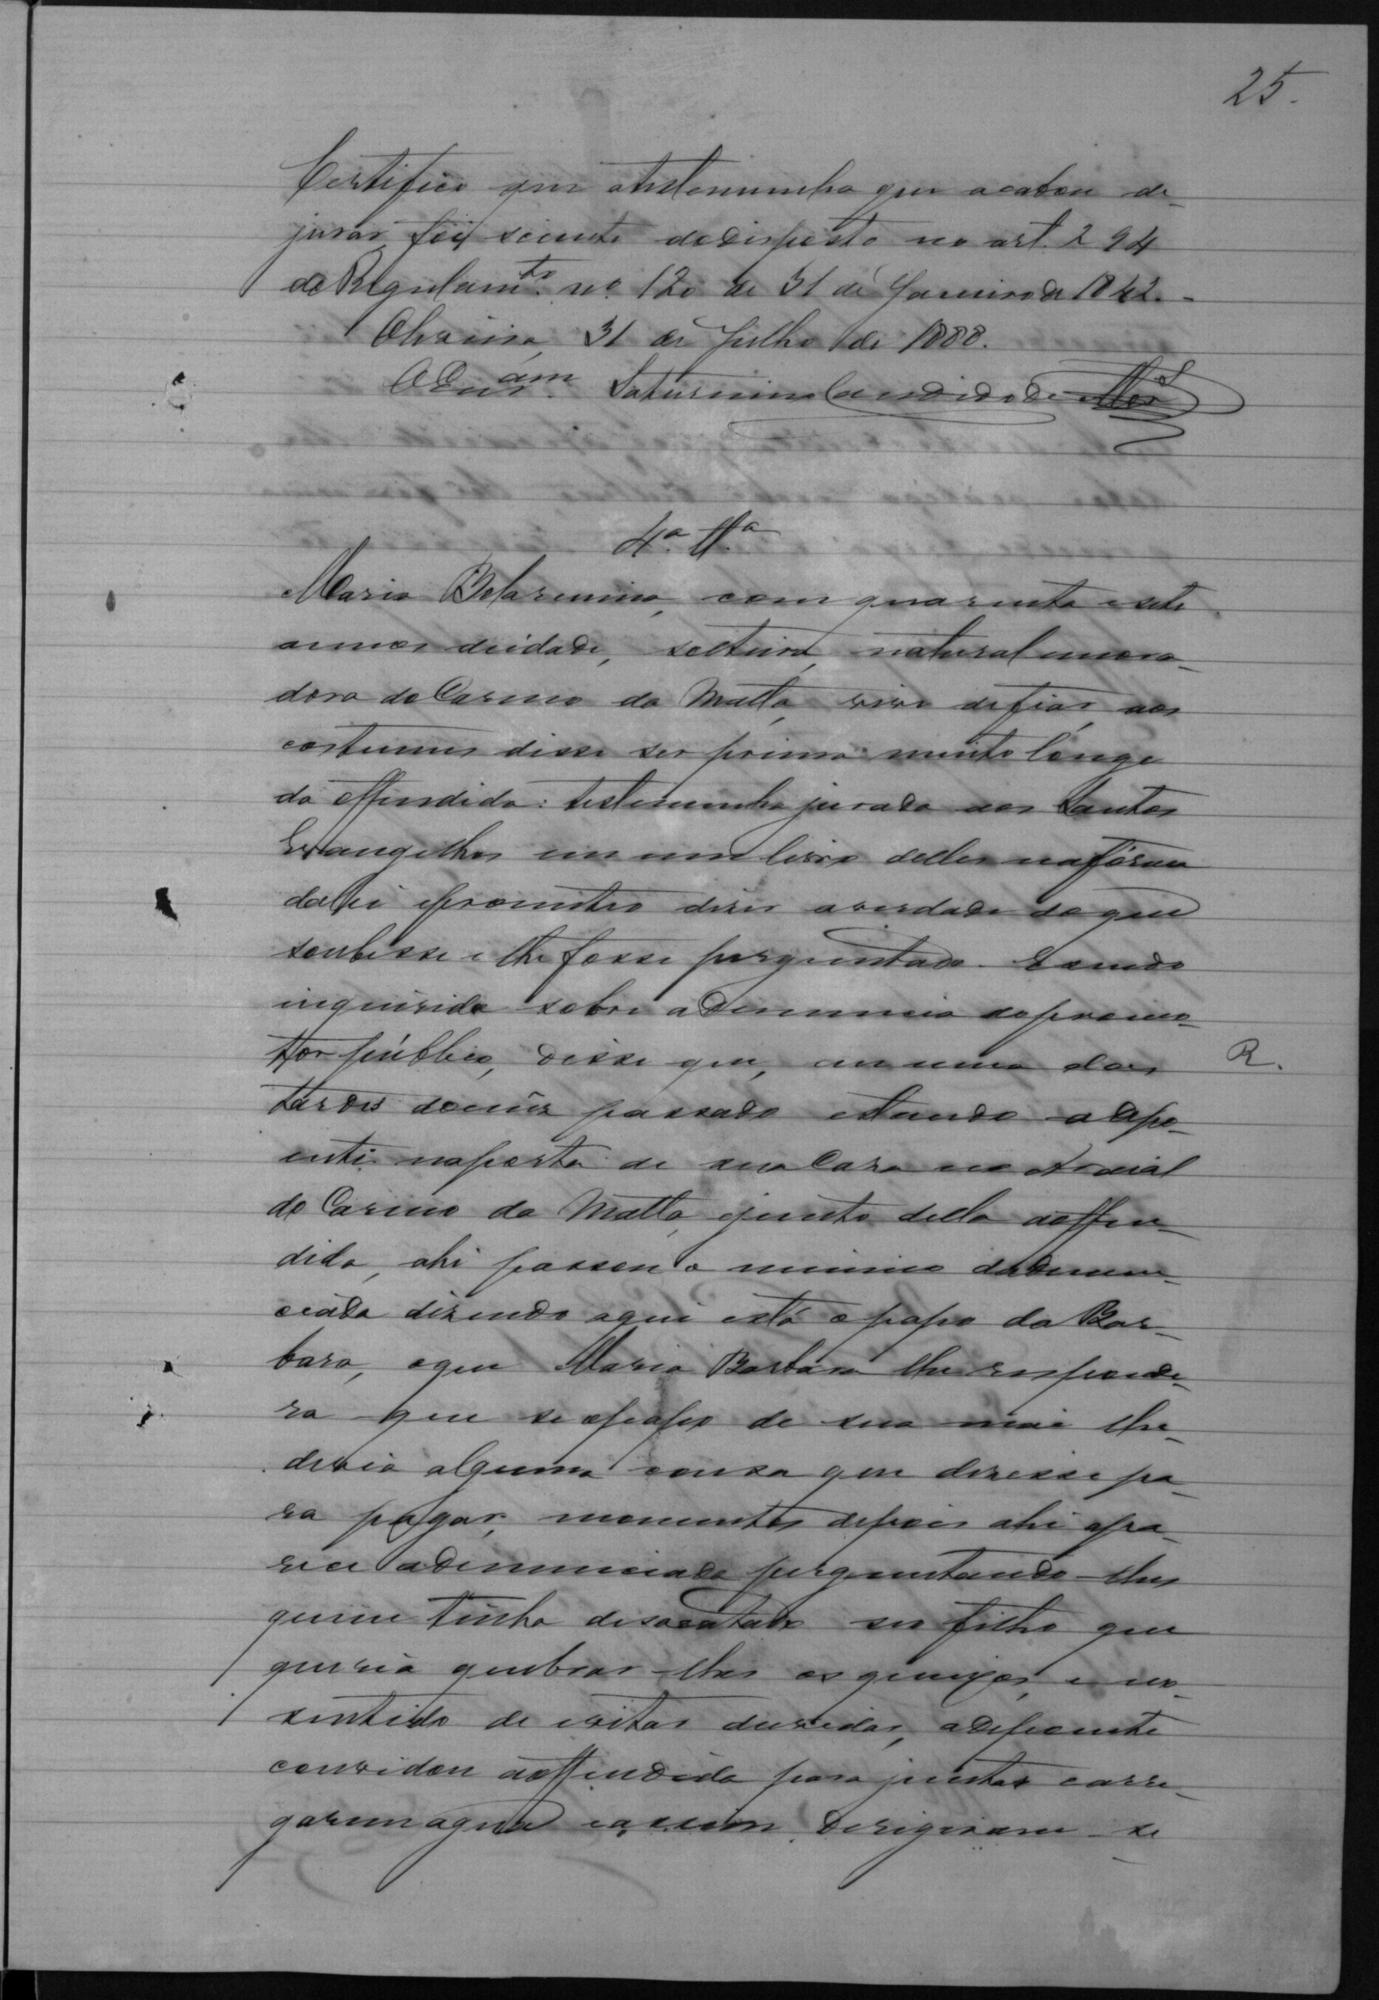 25.
Certifico que atestemunha que acabou de
jurar, foi sciente dodisposto no art. 294
do Regulam.to n.º 120 de 31 de Janeiro de 1842.
Oliveira, 31 de Julho de 1888.
O Escr.am Saturnino Candido de
4.ª T.ª
Maria Belarmina, com quarenta e sete
annos deidade, solteira, natural emora-
dora do Carmo da Matta, vive defiar, aos
costumes disse ser prima muito lónge
da offendida: testemunha jurada aos Santos
Evangelhos em um livro delles na fórma
dalei eprometteo diser averdade do que
soubesse e lhe fosse perguntado. E sendo
inquirida sobre adenuncia dopromo-
tor público, disse que, em uma das
R.
tardes domêz passado estando adepo-
ente naporta de sua Casa no Arraial
do Carmo da Matta, ejunto della aoffen-
dida, ahi passou o menino dadenun-
ciada disendo aqui está o papo da Bar-
bara, oque Maria Barbara lhe responde-
ra que se opapo de sua mai lhe-
devia alguma cousa que dissesse pa-
ra pagar, momentos depois ahi apa-
rece adenunciada perguntando-lhes
quem tinha desacatado seu filho que
queria quebrar-lhes os queixos, e no
sentido de evitar duvidas, adepoente
convidou aoffendida para juntas carre-
garem agua eassim dirigiram-se